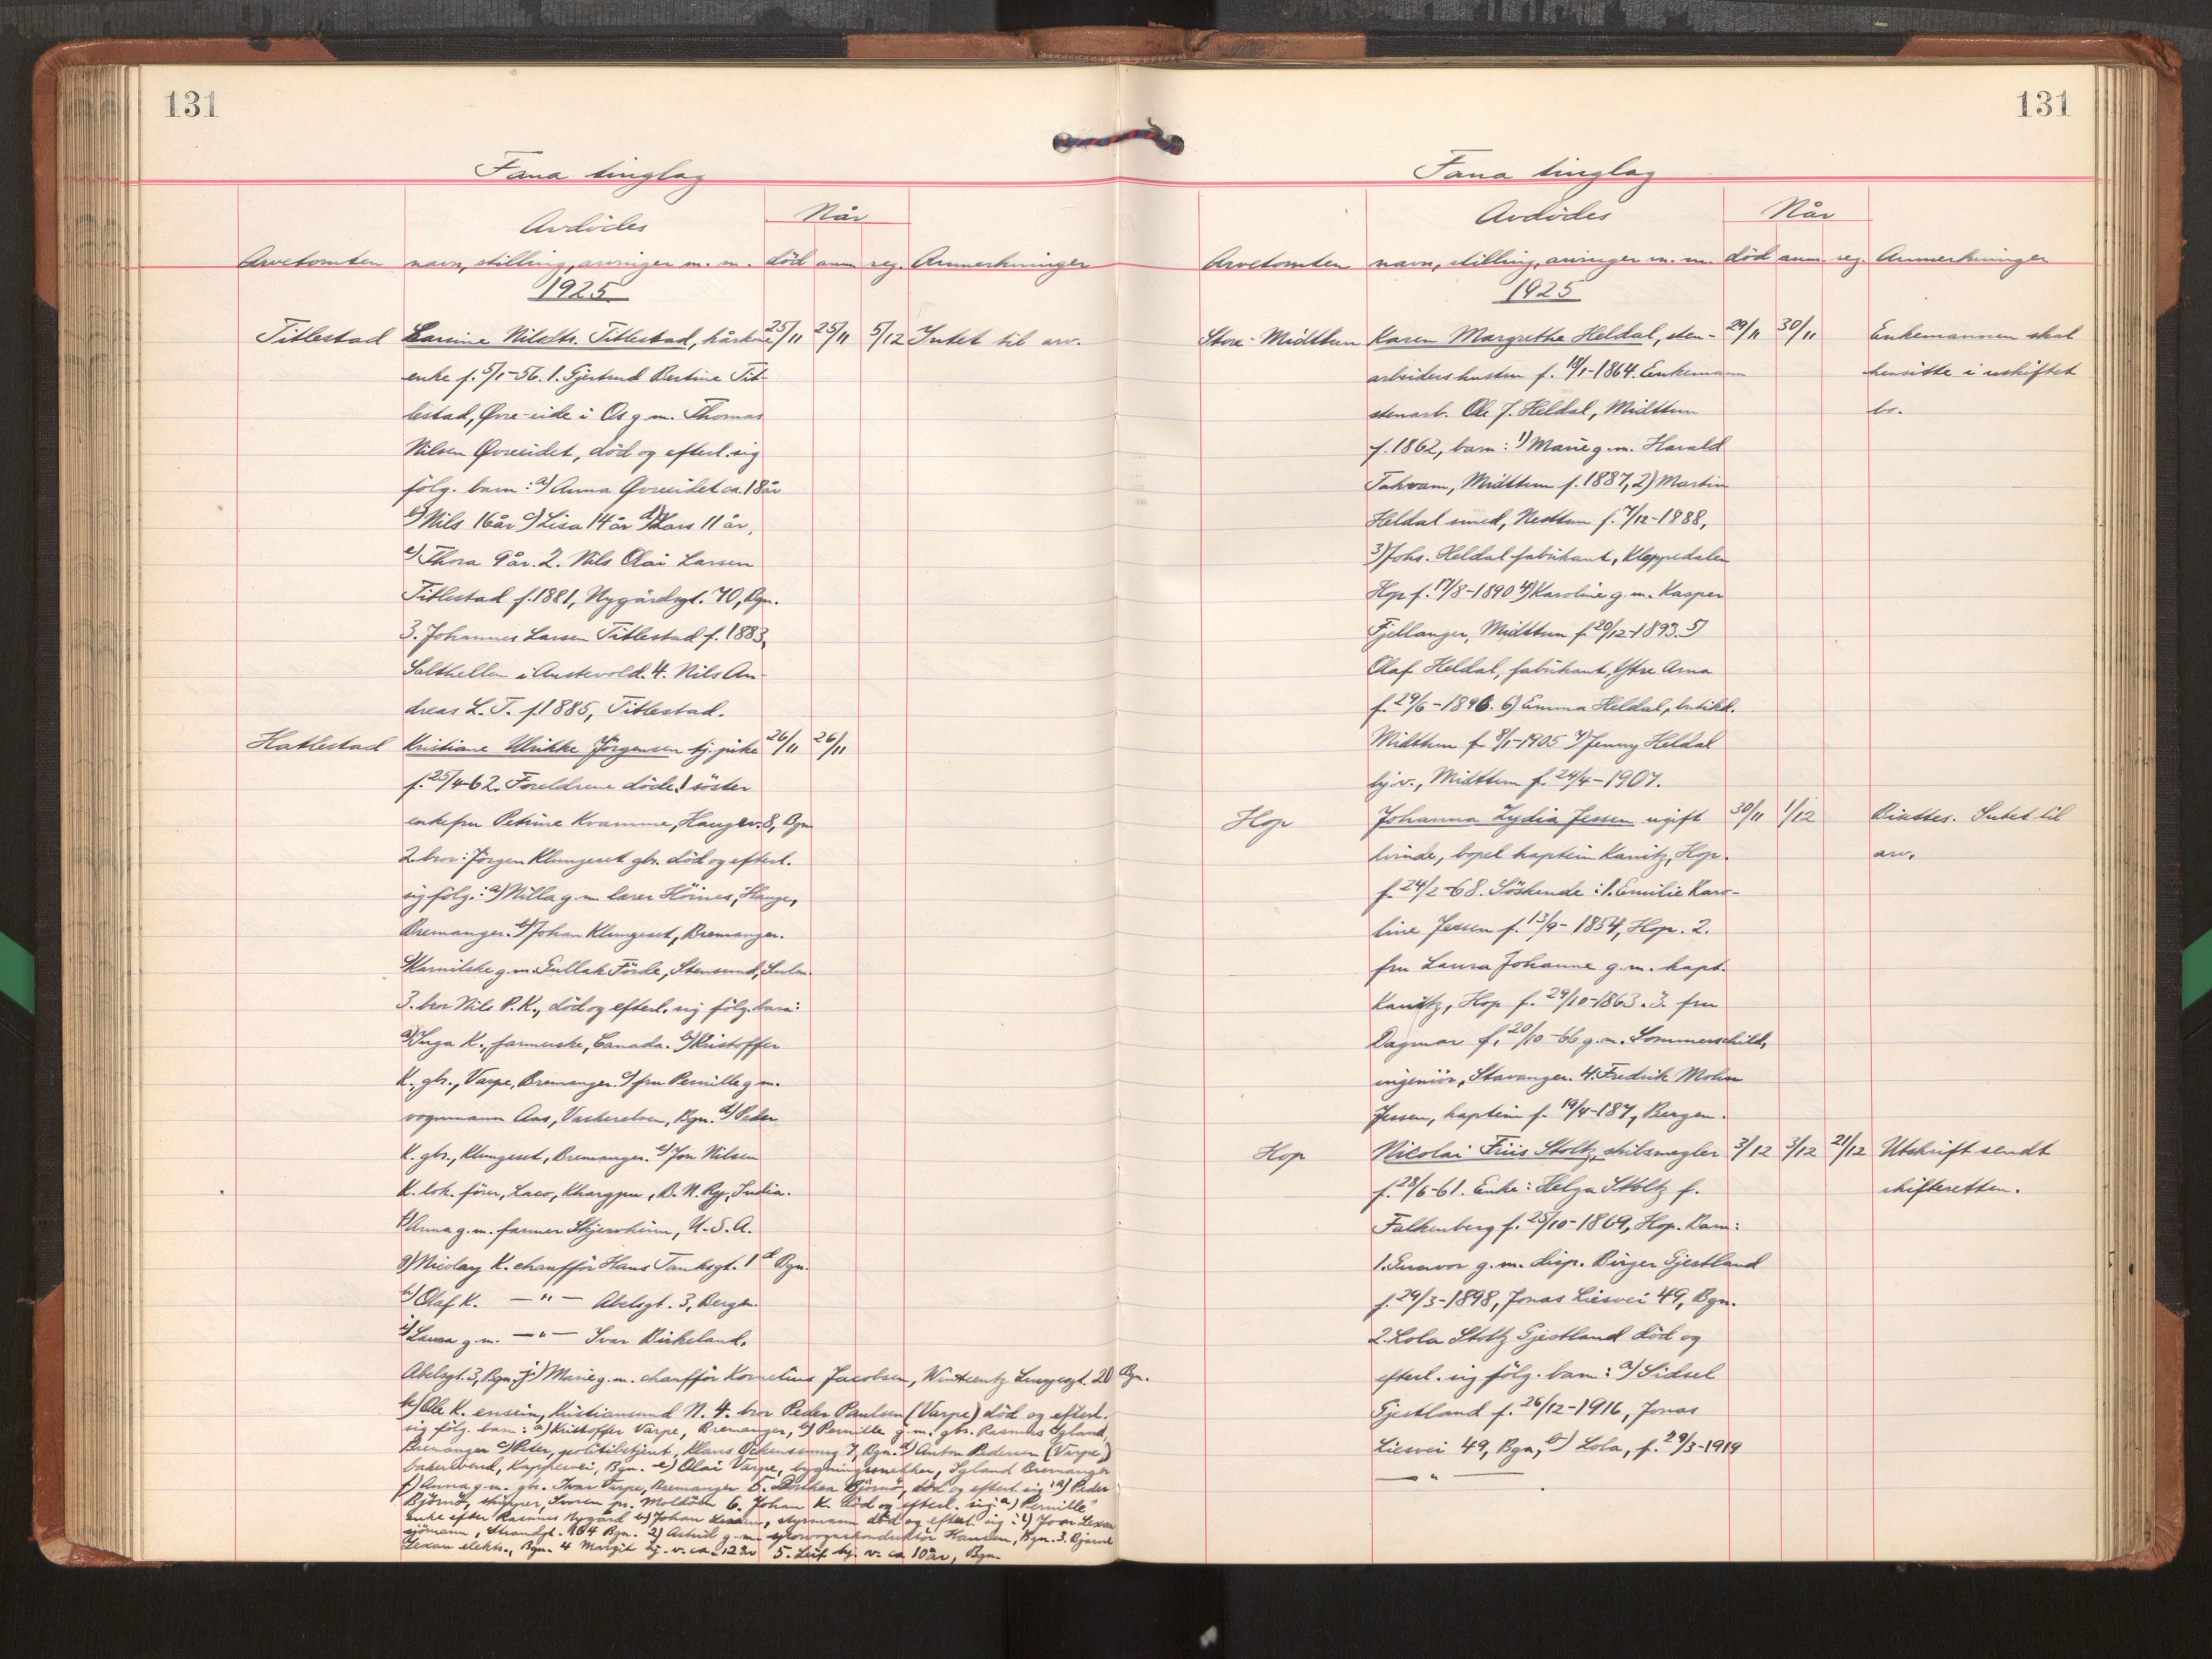 131
Fana tinglag
Avdødes
Når
Arvetomten navn, stilling, arvinger m. m. død anm reg. Anmerkninger
1925
Titlestad Larsine Nildtr. Titlestad, kårkone 25/11 25/11 5/12 Intet til arv.
enke f. 5/1-56. 1. Gjertrud Bertine Tit-
lestad, Øvre-eide i Os g.m. Thomas
Nilsen Øvreeidet, død og efterl. sig
følg. barn: a) Anna Øvreeidet ca. 18 år
b) Nils 16 år c) Lisa 14 år d) Lars 11 år,
e) Thora 9 år. 2. Nils Olai Larsen
Titlestad f. 1881, Nygårdsgt. 70, Bgn.
3. Johannes Larsen Titlestad f. 1883,
Salthellen i Austevold. 4. Nils An-
dreas L. T. f. 1885, Titlestad.
Hatlestad Kristiane Ulrikke Jörgensen tj. pike 26/11 26/11
f. 25/4-62. Foreldrene døde. 1 søster
enkefru Petrine Kramme, Haugev. 8, Bgn
2. bror: Jørgen Klungeset gbr. død og efterl.
sig følg.: a) Milla g.m. lærer Höines, Hauge,
Bremanger. b) Johan Klungeset, Bremanger.
g.m. Gullak Förde, Stensund,
3. bror Nils P. K., død og efterl. sig følg. barn:
a) Inga K., farmerske, Canada. b) Kristoffer
K., gbr., Varpe, Bremanger. c) fru Pernille g.m.
vognmann Aas, Vaskerelven, Bgn. d) Peder
K. gbr., Klungeset, Bremanger. e) Jon Nilsen
K. lok. fører, Laco, Khargpur, B. N. Ry, India.
f) Anna g.m. farmer Skjerveheim, U.S.A.
g) Nicolay K. chaufför Hans Tanksgt. 1 d Bgn.
h) Olaf K. — " — Abelsgt. 3, Bergen.
i) Laura g.m. — " — Ivar Birkeland,
Abelsgt. 3, Bgn. j) Marie g.m. chauffør Kornelius Jacobsen, 20 Bgn.
k) Ole K. ensein, Kristiansund N. 4. bror Peder Paulsen (Varpe) død og efterl.
sig følg. barn: a) Kristoffer Varpe, Bremanger, b) Pernille g.m. gbr. Rasmus Igland,
Bremanger c) Peter, politibetjent, Klaus Ockenssmug 7, Bgn. d) Anton Pedersen (Varpe),
bakersvend, Kappevei, Bgn. e) Olai Varpe, bygningssnekker, Igland Bremanger
f) Anna g.m. gbr. Ivar Varpe, Bremanger 5. Björnö, død og efterl. sig: a) Peder
Björnö, skipper, pr. Moldøen 6. Johan K. död og efterl. sig: a) Pernille
enke efter Rasmus Nygård b) Johan Lexau, styrmann død og efterl. sig: 1) Lexau
sjömann, Strandgt. 104 Bgn. 2) Astrid g.m. sporvognskonduktör Hansen, Bgn. 3. Bjarne
Lexau elektr., Bgn. 4 Margit hj. v. ca. 12 år 5. Leif hj. v. ca 10 år, Bgn.
131
Fana tinglag
Avdødes
Når
Arvetomten navn, stilling, arvinger m. m. død anm. reg. Anmerkninger
1925
Store-Midttun Karen Margrethe Heldal, sten- 29/11 30/11 Enkemannen skal
arbeiders hustru f. 18/1-1864. Enkemann hensitte i uskiftet
stenarb. Ole J. Heldal, Midttun bo.
f. 1862, barn: 1) Marie g.m. Harald
Takvam, Midttun f. 1887, 2) Martin
Heldal smed, Nesttun f. 7/12-1888,
3) Johs. Heldal fabrikant, Kloppedalen
Hop f. 17/8-1890 4) Karoline g.m. Kasper
Fjellanger, Midttun f. 20/12-1893. 5)
Olaf Heldal, fabrikant, Ytre Arna
f. 29/6-1896. 6) Emma Heldal, butikd.
Midttun f. 8/1-1905 7) Jenny Heldal
hj. v., Midttun f. 24/4-1907.
Hop Johanna Lydia Jessen ugift 30/11 1/12 Riattes. Intet til
kvinde, bopel kaptein Kanitz, Hop. arv.
f. 24/2-68. Söskende: 1. Emilie Karo-
line Jessen f. 13/9-1854, Hop. 2.
fru Laura Johanne g.m. kapt.
Kanitz, Hop f. 29/10-1863. 3. fru
Dagmar f. 20/10-66 g.m. Sommerschild,
ingeniör, Stavanger. 4. Fredrik Mohn
Jessen, kaptein f. 19/4-187, Bergen.
Hop Nicolai Friis Stoltz, skibsmegler 3/12 3/12 21/12 Utskrift sendt
f. 28/6-61. Enke: Helga Stoltz f. skifteretten.
Falkenberg f. 25/10-1869, Hop. Barn:
1. Gunvor g.m. disp. Birger Gjestland
f. 29/3-1898, Jonas Liesvei 49, Bgn.
2. Lola Stoltz Gjestland död og
efterl. sig følg. barn: a) Sidsel
Gjestland f. 26/12-1916, Jonas
Liesvei 49, Bgn, b) Lola, f. 29/3-1919
— " —